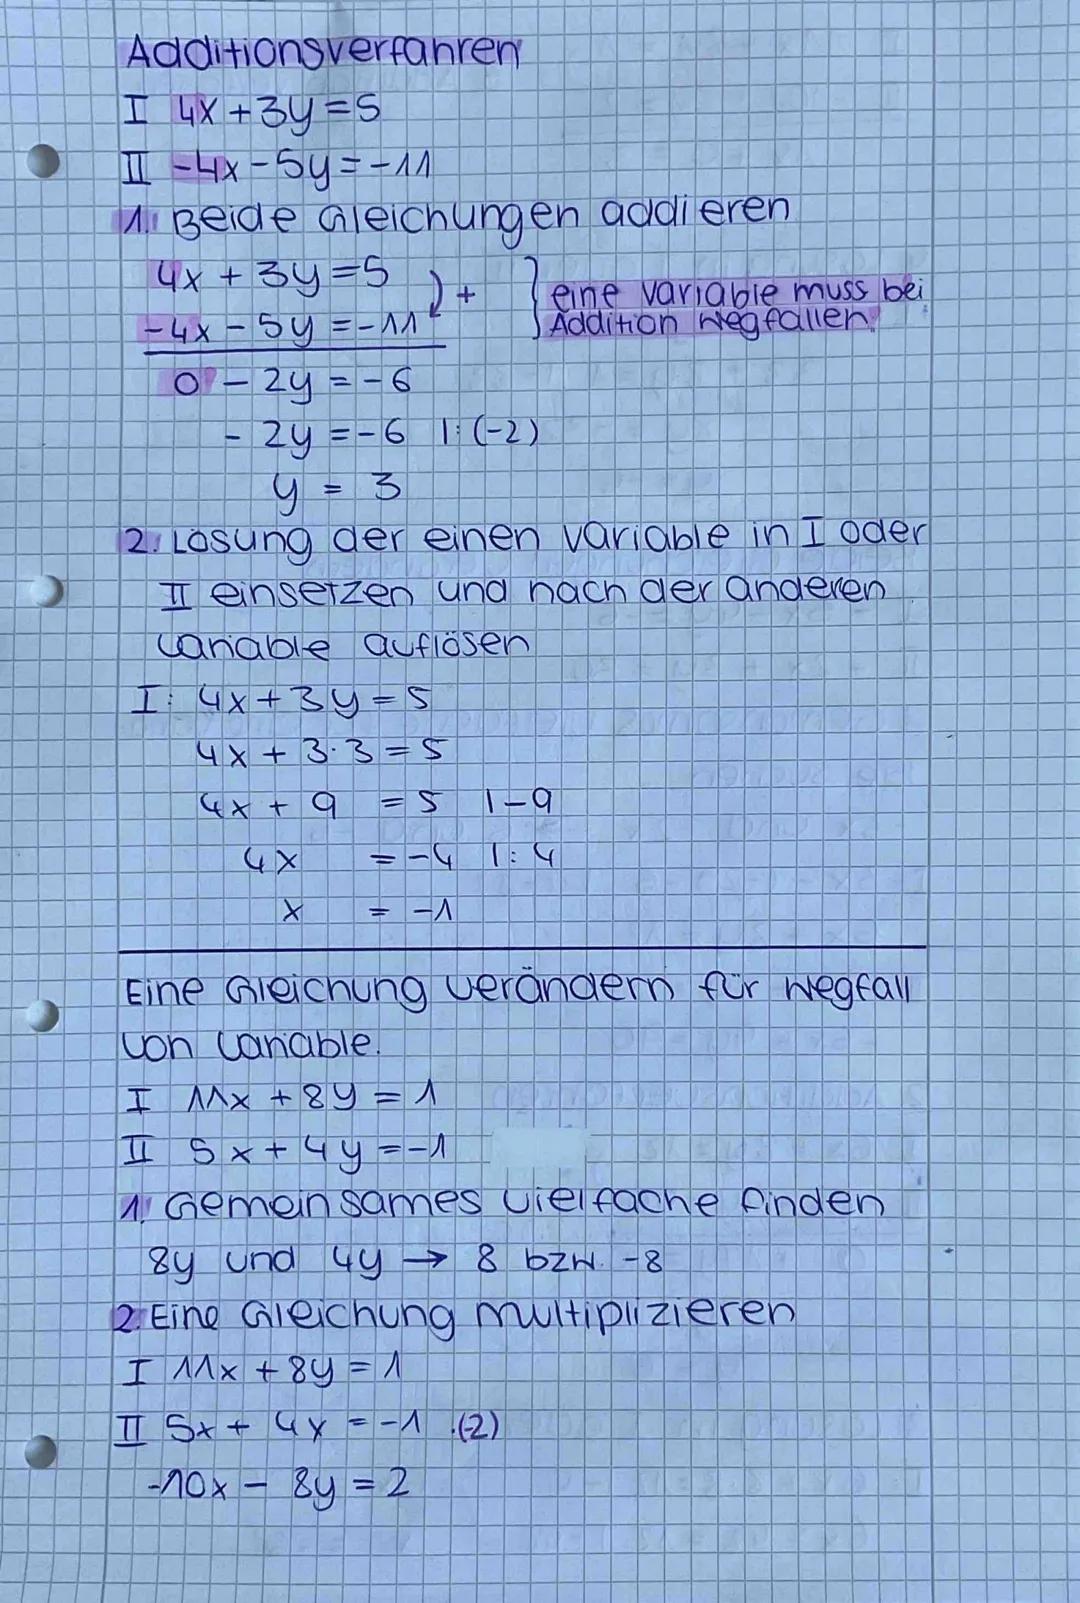 Additionsverfahren
I 4x+3y=5
II -4x-5y=-11
1. Beide Gleichungen addieren
4x + 3y=5
-4x-5y=-11 + } eine Variable muss bei
Addition wegfallen!
0 - 2y = -6
- 2y =-6 |:(-2)
y = 3
2. Lösung der einen Variable in I oder
II einsetzen und nach der anderen
Variable auflösen
I: 4x+3y=5
4x + 3·3=5
4x + 9 =5 |-9
4x =-4 |:4
x = -1
Eine Gleichung verändern für Wegfall
von Variable.
I 11x +8y = 1
II 5x+4y=-1
1. Gemeinsames Vielfache finden
8y und 4y → 8 bzw. -8
2. Eine Gleichung multiplizieren
I 11x +8y=1
II 5x+ 4x =-1 ·(-2)
-10x - 8y = 2